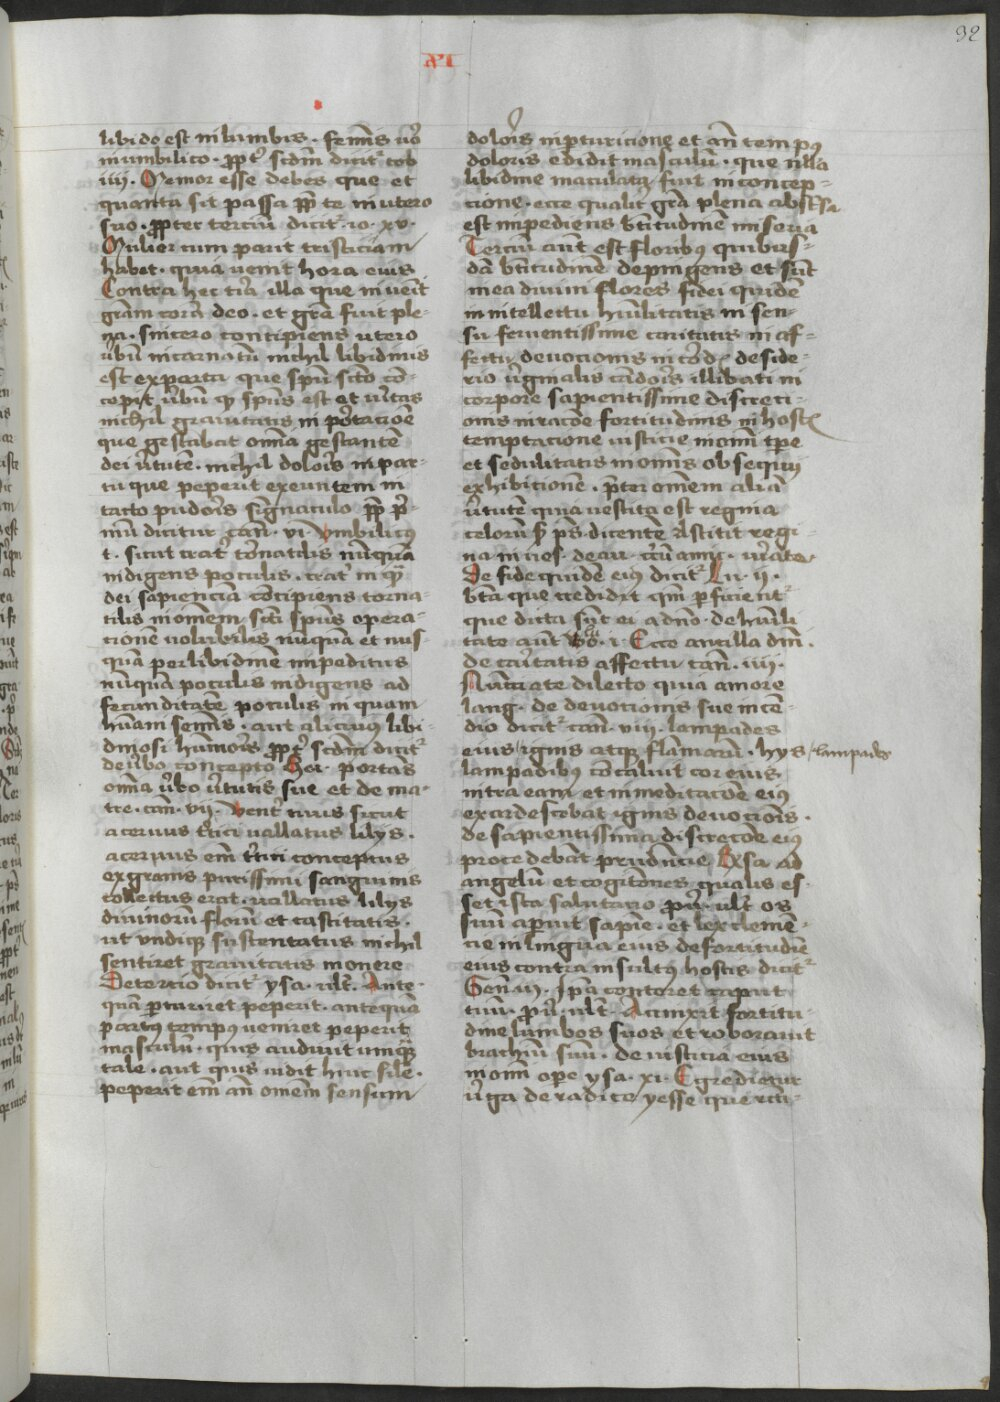 92
libido est in lumbis. femīs vō
in umbilico. ꝓpt' scdm̄ dicit tob
iiii. Memor esse debes que et
quanta sit passa ꝓp te in utero
suo. ꝓpter terciū dicit^r. io. xv.
Mulier cum parit tristiciam
habet. quia uenit hora eius
Contra hec tria illa que inuēit
grām corā deo. et grā fuit ple-
na. sincero concipiens utero
ūbū incarnatū nichil libidinis
est experta que spū scō cō-
cepit ūbū qꝫ spūs est et ūitas
nichil grauitatis in portacōe
que gestabat omīa gestantē
dei ūtutē. nichil doloris in par-
tu que peperit exeuntem in
tacto pudoris signaculo ꝓp p'-
mū dicitur can̄. vi. Vmbilicꝰ
t. sicut crat' tornatilis nūquā
indigens poculis. crat' in q̄
dei sapiencia cōcipiens torna-
tilis in omnem scī spūs opera-
cionem uolubilis nūquā et nus-
quā per libidinē impeditus
nūquā poculis indigens ad
fecunditatē poculis inquam
hūani seminis. aut alicuius libi-
dinosi hūoris ꝓpt' scdm̄ dicit^r
de ūbo concepto Heb. portans
omīa ūbo ūtutis sue et de ma-
tre. can̄. vii. Vent' tuus sicut
aceruus t'tici uallatus lilijs.
aceruus em̄ t'tici conceptus
ex granis purissimi sanguinis
collectus erat. uallatus lilijs
diuinorū florū et castitatis.
ut vndiqꝫ sustentatus nichil
sentiret grauitatis in onere
De tercio dicit^r ysa. ult̄. Ante-
quā ꝑturiret peperit. antequā
partꝰ tempꝰ ueniret peperit
masculū. quis audiuit umqꝫ
tale. aut quis uidit huic silē.
peperit em̄ an̄ omem̄ sensum
doloris in ꝑturicione et an̄ tempꝰ
doloris edidit masculū. que nulla
libidine maculata fuit in concep-
cione. ecce qualit' grā plena abs̄ssa
est impediens btitudinē miseria
Terciū aūt est floribꝰ quibus-
dā btitudinē depingens et sūt
in ea diuini flores fidei quidē
in intellectu hūilitatis in sen-
su feruentissime caritatis in af-
fectu deuocionis in cord' deside-
rio ūginalis cādoris illibati in
corpore sapientissime discreci-
onis in racōe fortitudinis in host'
temptacione iusticie in omī tpe
et sedulitatis in omīs obsequij
exhibitione. p̄ter omem̄ aliā
ūtutē qua uestita est regina
celorū s ps̄. dicente Astitit regi-
na in ues. deau. cir̄ū ami. uriate.
De fide quidē eius dicit^r Lu. ii.
btā que credidit qm̄ ꝑficient^r
que dicta sūt ei a dn̄o. de hūili
tate aūt i. Ecce ancilla dm̄.
de caritatis affectu can̄. iiii.
Nūciate dilecto quia amore
lang. de deuocionis sue incē-
dio dicit^r can̄. viii. lampades
eius ignis atqꝫ flāmarū. hys / lampades
lampadibꝰ cōcaluit cor eius
intra eam et in meditacōe eiꝰ
exardescebat ignis deuociōis.
de sapientissima discrecōe eiꝰ
procedebāt prudēcie Rx̄sa ad
angelū et cogitōnes qualis es-
set ista salutacio ꝓu. ult̄ os
suū aꝑuit sapiē. et lex clemē-
cie in lingua eius de fortitudīe
eius contra insultꝰ hostis dicit^r
Gen̄ iii. Ip̄a conteret caput
tuū. ꝓu. ult̄. Accinxit fortitu-
dine lumbos suos et roborauit
brachiū suū. de iusticia eius
in omī ope ysa. xi. Egredietur
ūga de radice yesse que recti-